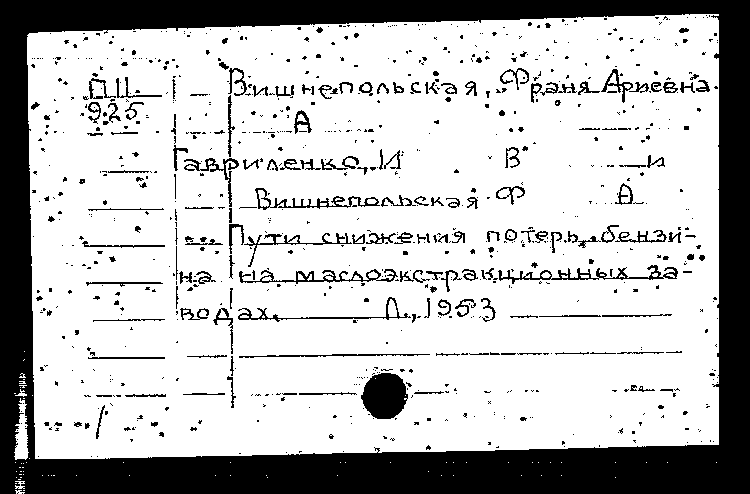 П11 Вишнепольская, Франя Ариевна.
925
А
Гавриленко, И В и
Вишнепольская Ф А
... Пути снижения потерь бензи-
на на маслоэкстракционных за-
водах. Л., 1953